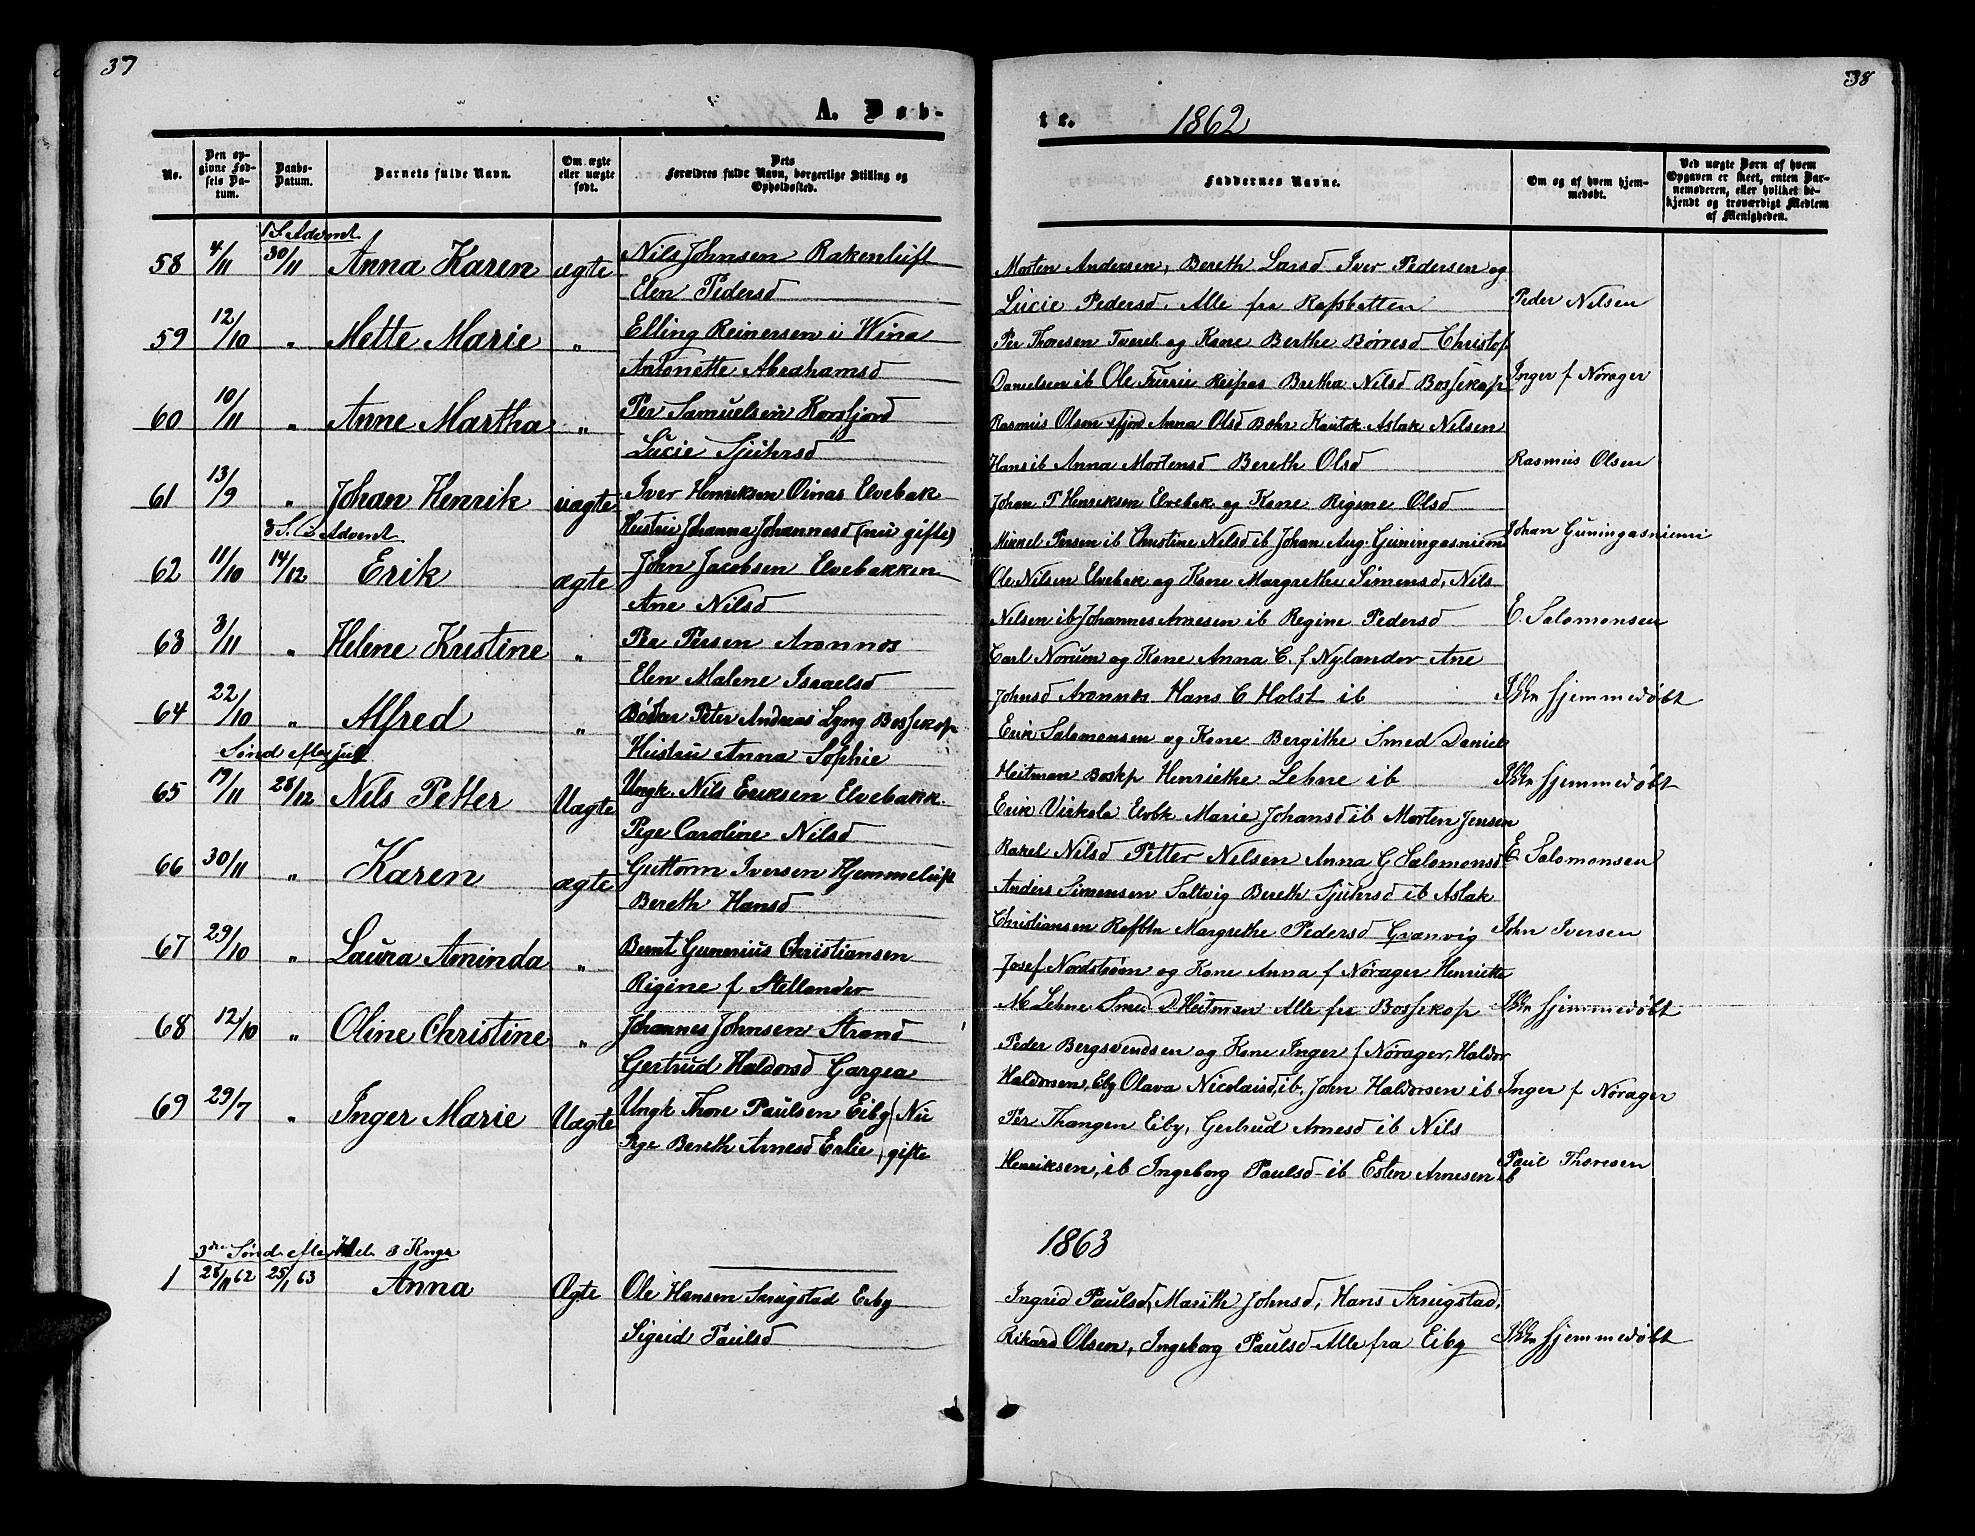 37
A. Døb-
No.
Den op-
givne Fød-
sels Da-
tum.
Daabs-
Datum.
Barnets fulde Navn.
Om ægte
eller uægte
født.
Dets
Forældres fulde Navn, borgerlige Stilling og
Opholdssted.
1 S. Advent
58 4/11 30/11 Anna Karen ægte Nils Johnsen Rakenluft
Elen Pedersd
59 12/10 " Mette Marie " Elling Reinersen i Wina
Antonette Abrahamsd
60 10/11 " Anne Martha " Per Samuelsen Korsfjord
Lucie Sjulersd
61 13/9 " Johan Henrik uægte Iver Henriksen Oinas Elvebak
Hustru Johanna Johannesd (nu gifte)
3 S. i Advent
62 11/10 14/12 Erik ægte John Jacobsen Elvebakken
Ane Nilsd
63 3/11 " Helene Kristine " Per Persen Aronnæs
Elen Malene Israelsd
64 22/10 " Alfred " Bødker Peter Andreas Lyng Bossekop
Hustru Anna Sophie
Sønd. efter Jul
65 19/11 28/12 Nils Petter Uægte Ungk. Nils Eriksen Elvebakk.
Pige Caroline Nilsd
66 30/11 " Karen ægte Guttorm Iversen Hjemmeluft
Bereth Hansd
67 29/10 " Laura Aminda " Bernt Gunerius Christiansen
Rigine f Stellander
68 12/10 " Oline Christine " Johannes Johnsen Strand
Gertrud Haldorsd Gargea
69 29/7 " Inger Marie Uægte Ungk Thore Paulsen Eiby (Nu
Pige Bereth Arnesd Eslie) gifte
3die Sønd. efter Hel. 3 Kngr
1 28/11 62 25/1 63 Anna Ægte Ole Hansen Skrugstad Eiby
Sigrid Paulsd
38
te. 1862
Faddernes Navne.
Om og af hvem hjem-
medøbt.
Ved uægte Børn af hvem
Opgaven er skeet, enten Bar-
nemoderen, eller hvilket be-
kjendt og troværdigt Medlem
af Menigheden.
Morten Andersen, Bereth Larsd Iver Pedersen og
Lucie Pedersd. Alle fra Rafsbotten Peder Nilsen
Per Thoresen Tverel og Kone Berthe Børresd Christof
Danielsen ib Ole Furrie Reipas Bretha Nilsd Bossekop Inger f Nørager
Rasmus Olsen fjord Anna Olsd Kautok. Aslak Nilsen
Hans ib Anna Mortensd Bereth Olsd Rasmus Olsen
Johan P Henriksen Elvebak og Kone Regine Olsd
Mikkel Persen ib Christine Nilsd ib Johan Aug. Guningasniemi Johan Guningasniemi
Ole Nilsen Elvebak og Kone Margrethe Simensd, Nils
Nilsen ib Johannes Arnesen ib Regine Pedersd E. Salomonsen
Carl Norum og Kone Anna C. f Nylander Ane
Johnsd Aronnæs Hans C Holst ib Ikke hjemmedøbt
Erik Salomonsen og Kone Bergithe Smed Daniel
Heitman Boskp Henriethe Lehne ib Ikke hjemmedøbt
Erik Virkola Elvbk Marie Johansd ib Morten Jensen
Rakel Nilsd Petter Nilsen Anna G Salomonsd E Salomonsen
Anders Simensen Saltvig Bereth Sjulersd ib Aslak
Christiansen Rafbtn Margrethe Pedersd Granvig John Iversen
Josef Nordstrøm og Kone Anna f Nørager Henriethe
M Lehne Smed D Heitman Alle fra Bossekop Ikke hjemmedøbt
Peder Bergsvendsen og Kone Inger f Nørager, Haldor
Haldorsen, Eby Olava Nicolaisd, ib, John Haldorsen ib Inger f Nørager
Per Thangen Eiby, Gertrud Arnesd ib Nils
Henriksen, ib Ingeborg Paulsd ib Esten Arnesen ib Paul Thoresen
1863
Ingrid Paulsd, Marith Johnsd, Hans Skrugstad,
Rikard Olsen, Ingeborg Paulsd Alle fra Eiby Ikke hjemmedøbt